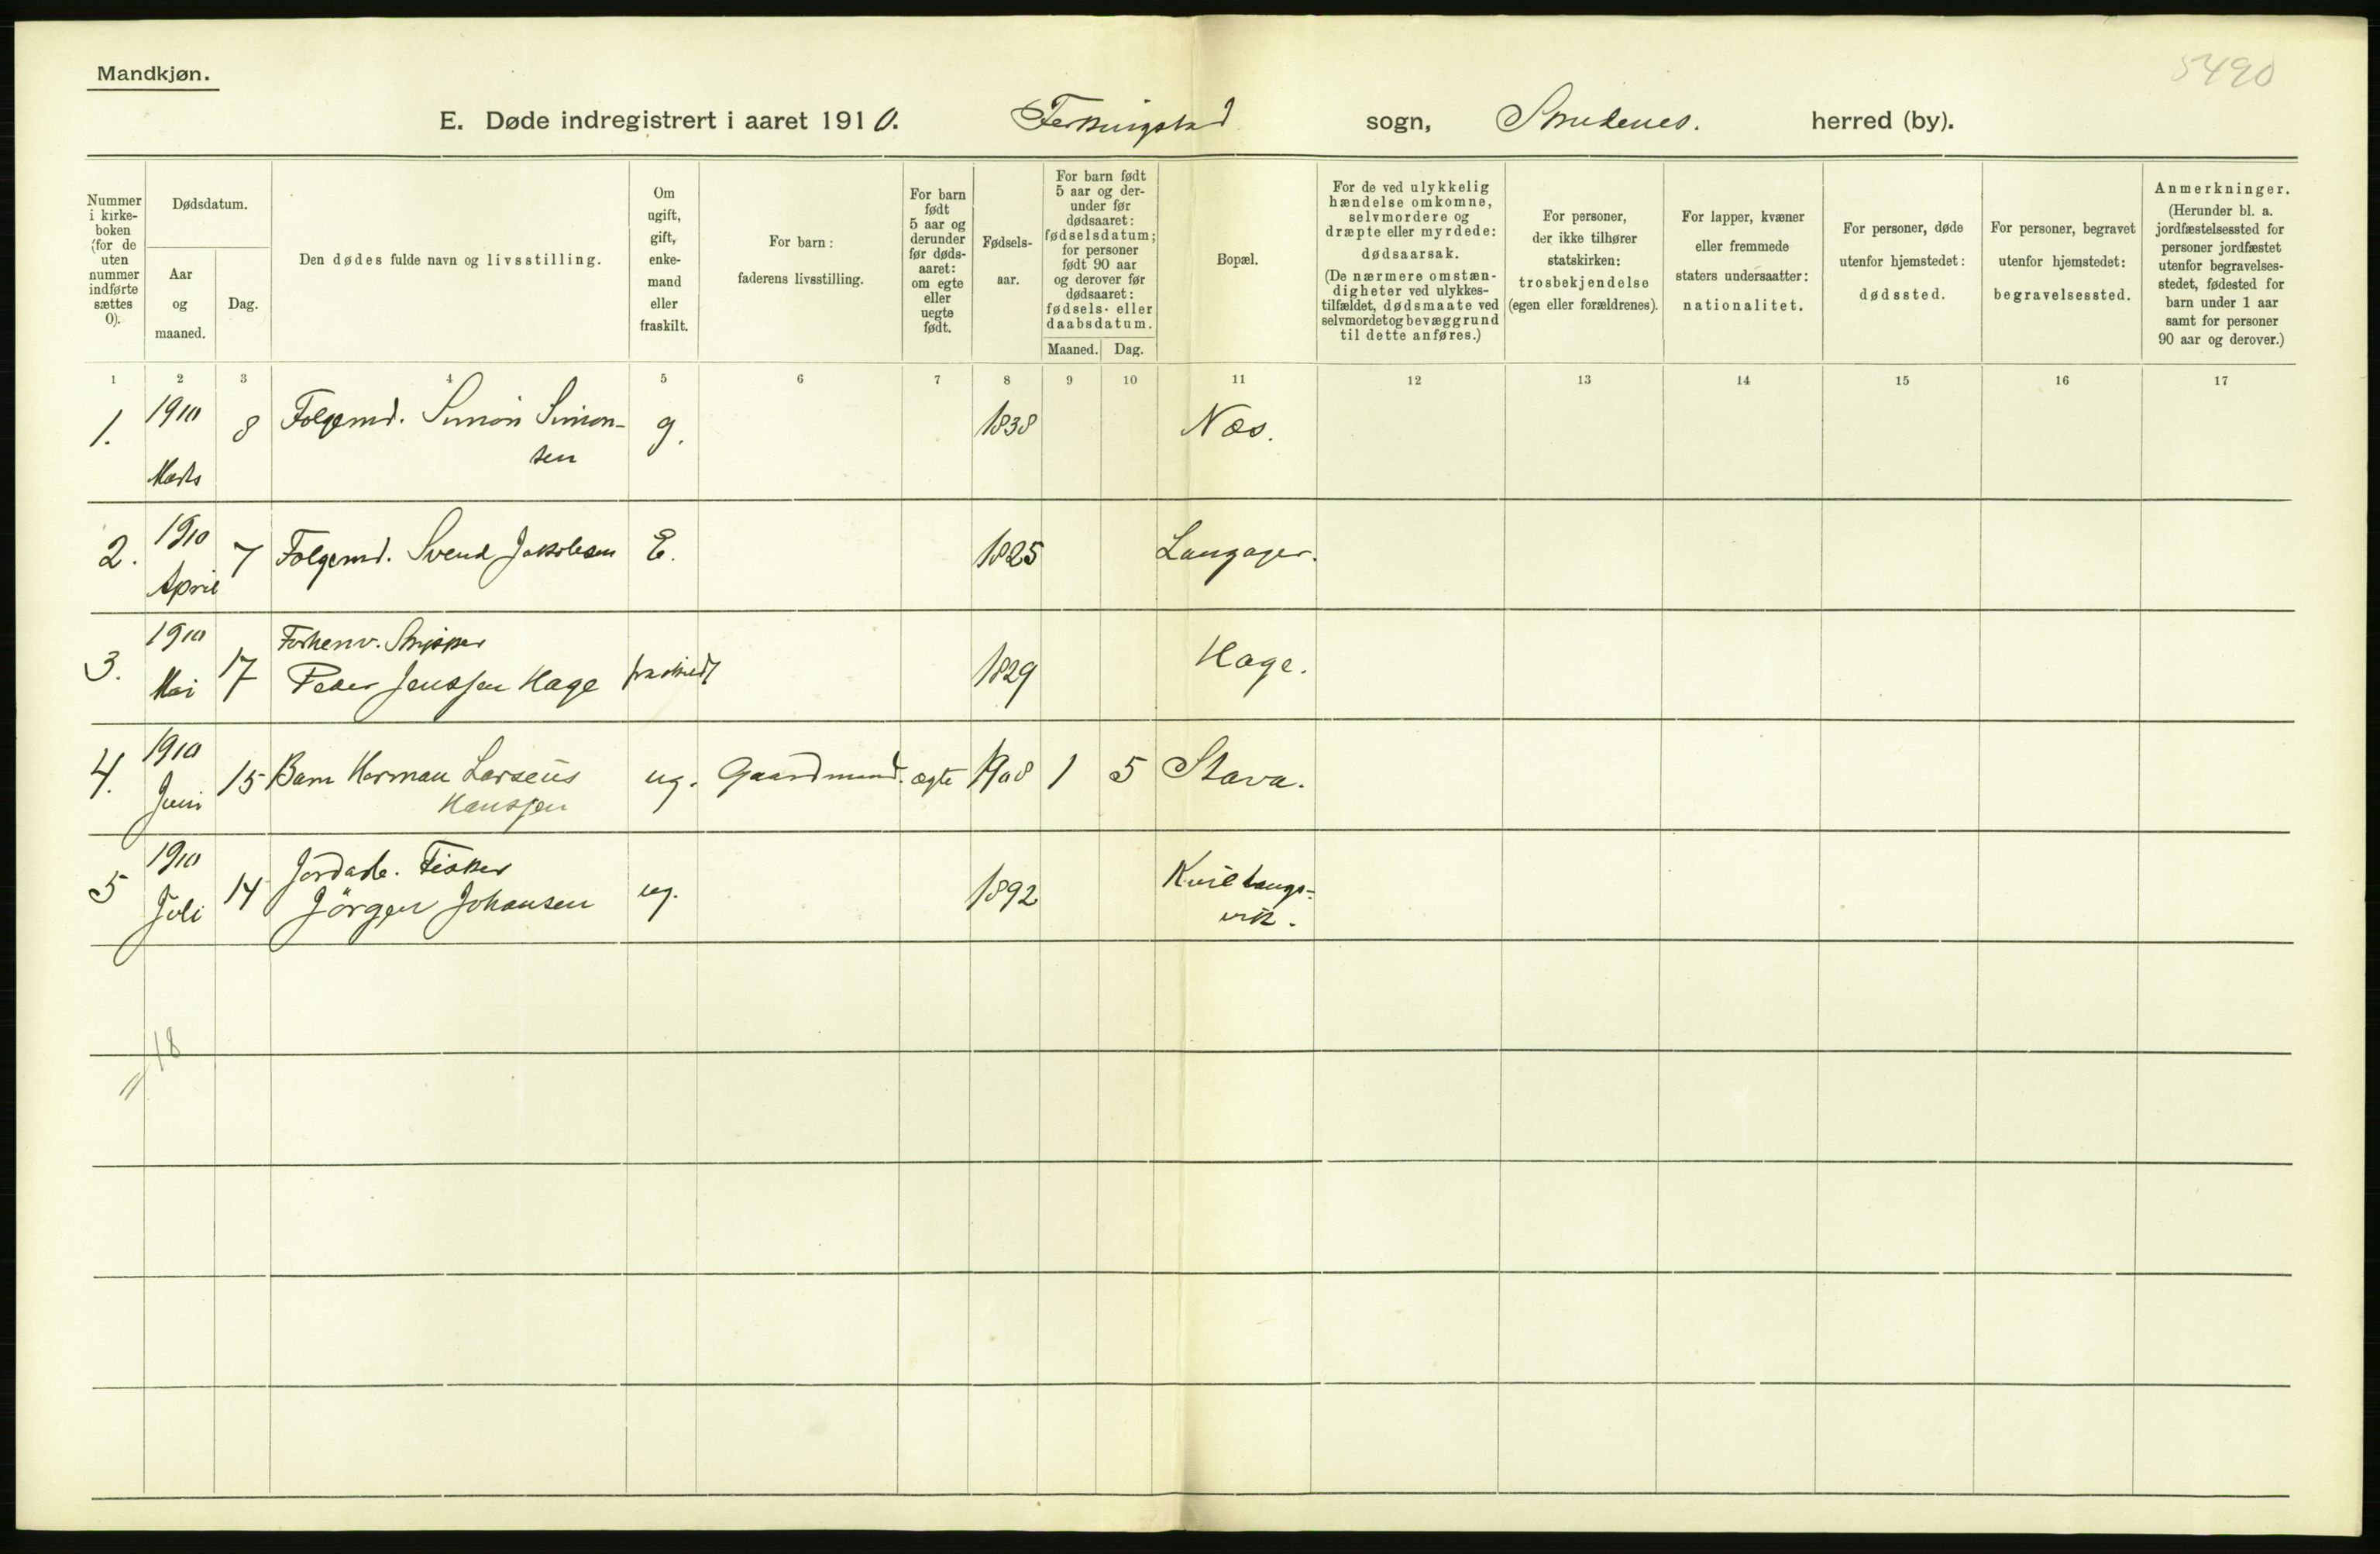 Mandkjøn.
5490
E. Døde indregistrert i aaret 1910. Ferkingstad sogn, Skudenes. herred (by).
Nummer i kirke-boken (for de uten nummer indførte sættes 0).
Dødsdatum.
Aar og maaned.
Dag.
Den dødes fulde navn og livsstilling.
Om ugift, gift, enke-mand eller fraskilt.
For barn: faderens livsstilling.
For barn født 5 aar og derunder før døds-aaret: om egte eller uegte født.
Fødsels-aar.
For barn født 5 aar og der-under før dødsaaret: fødselsdatum; for personer født 90 aar og derover før dødsaaret: fødsels- eller daabsdatum.
Maaned. Dag.
Bopæl.
For de ved ulykkelig hændelse omkomne, selvmordere og dræpte eller myrdede: dødsaarsak. (De nærmere omstæn-digheter ved ulykkes-tilfældet, dødsmaate ved selvmordet og bevæggrund til dette anføres.)
For personer, der ikke tilhører statskirken: trosbekjendelse (egen eller forældrenes).
For lapper, kvæner eller fremmede staters undersaatter: nationalitet.
For personer, døde utenfor hjemstedet: dødssted.
For personer, begravet utenfor hjemstedet: begravelsessted.
Anmerkninger. (Herunder bl. a. jordfæstelsessted for personer jordfæstet utenfor begravelses-stedet, fødested for barn under 1 aar samt for personer 90 aar og derover.)
1 2 3 4 5 6 7 8 9 10 11 12 13 14 15 16 17
1. 1910 Marts 8 Folgemd. Simon Simon-sen g. 1838 Næs.
2. 1910 April 7 Folgemd. Svend Jakobsen E. 1825 Langager.
3. 1910 Mai 17 Forhenv. Skipper Peder Jenssen Hage fraskilt 1829 Hage.
4. 1910 Juni 15 Barn Herman Larsens Hanssen ug. Gaardmand. ægte 1908 1 5 Stava.
5 1910 Juli 14 Jordarb. Fisker Jörgen Johansen ug. 1892
18